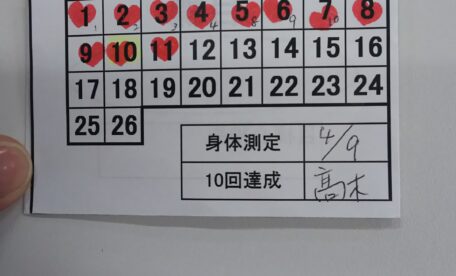 1 2 3 4 5 6 7 8
9 10 11 12 13 14 15 16
17 18 19 20 21 22 23 24
25 26
身体測定 4/9
10回達成 髙木